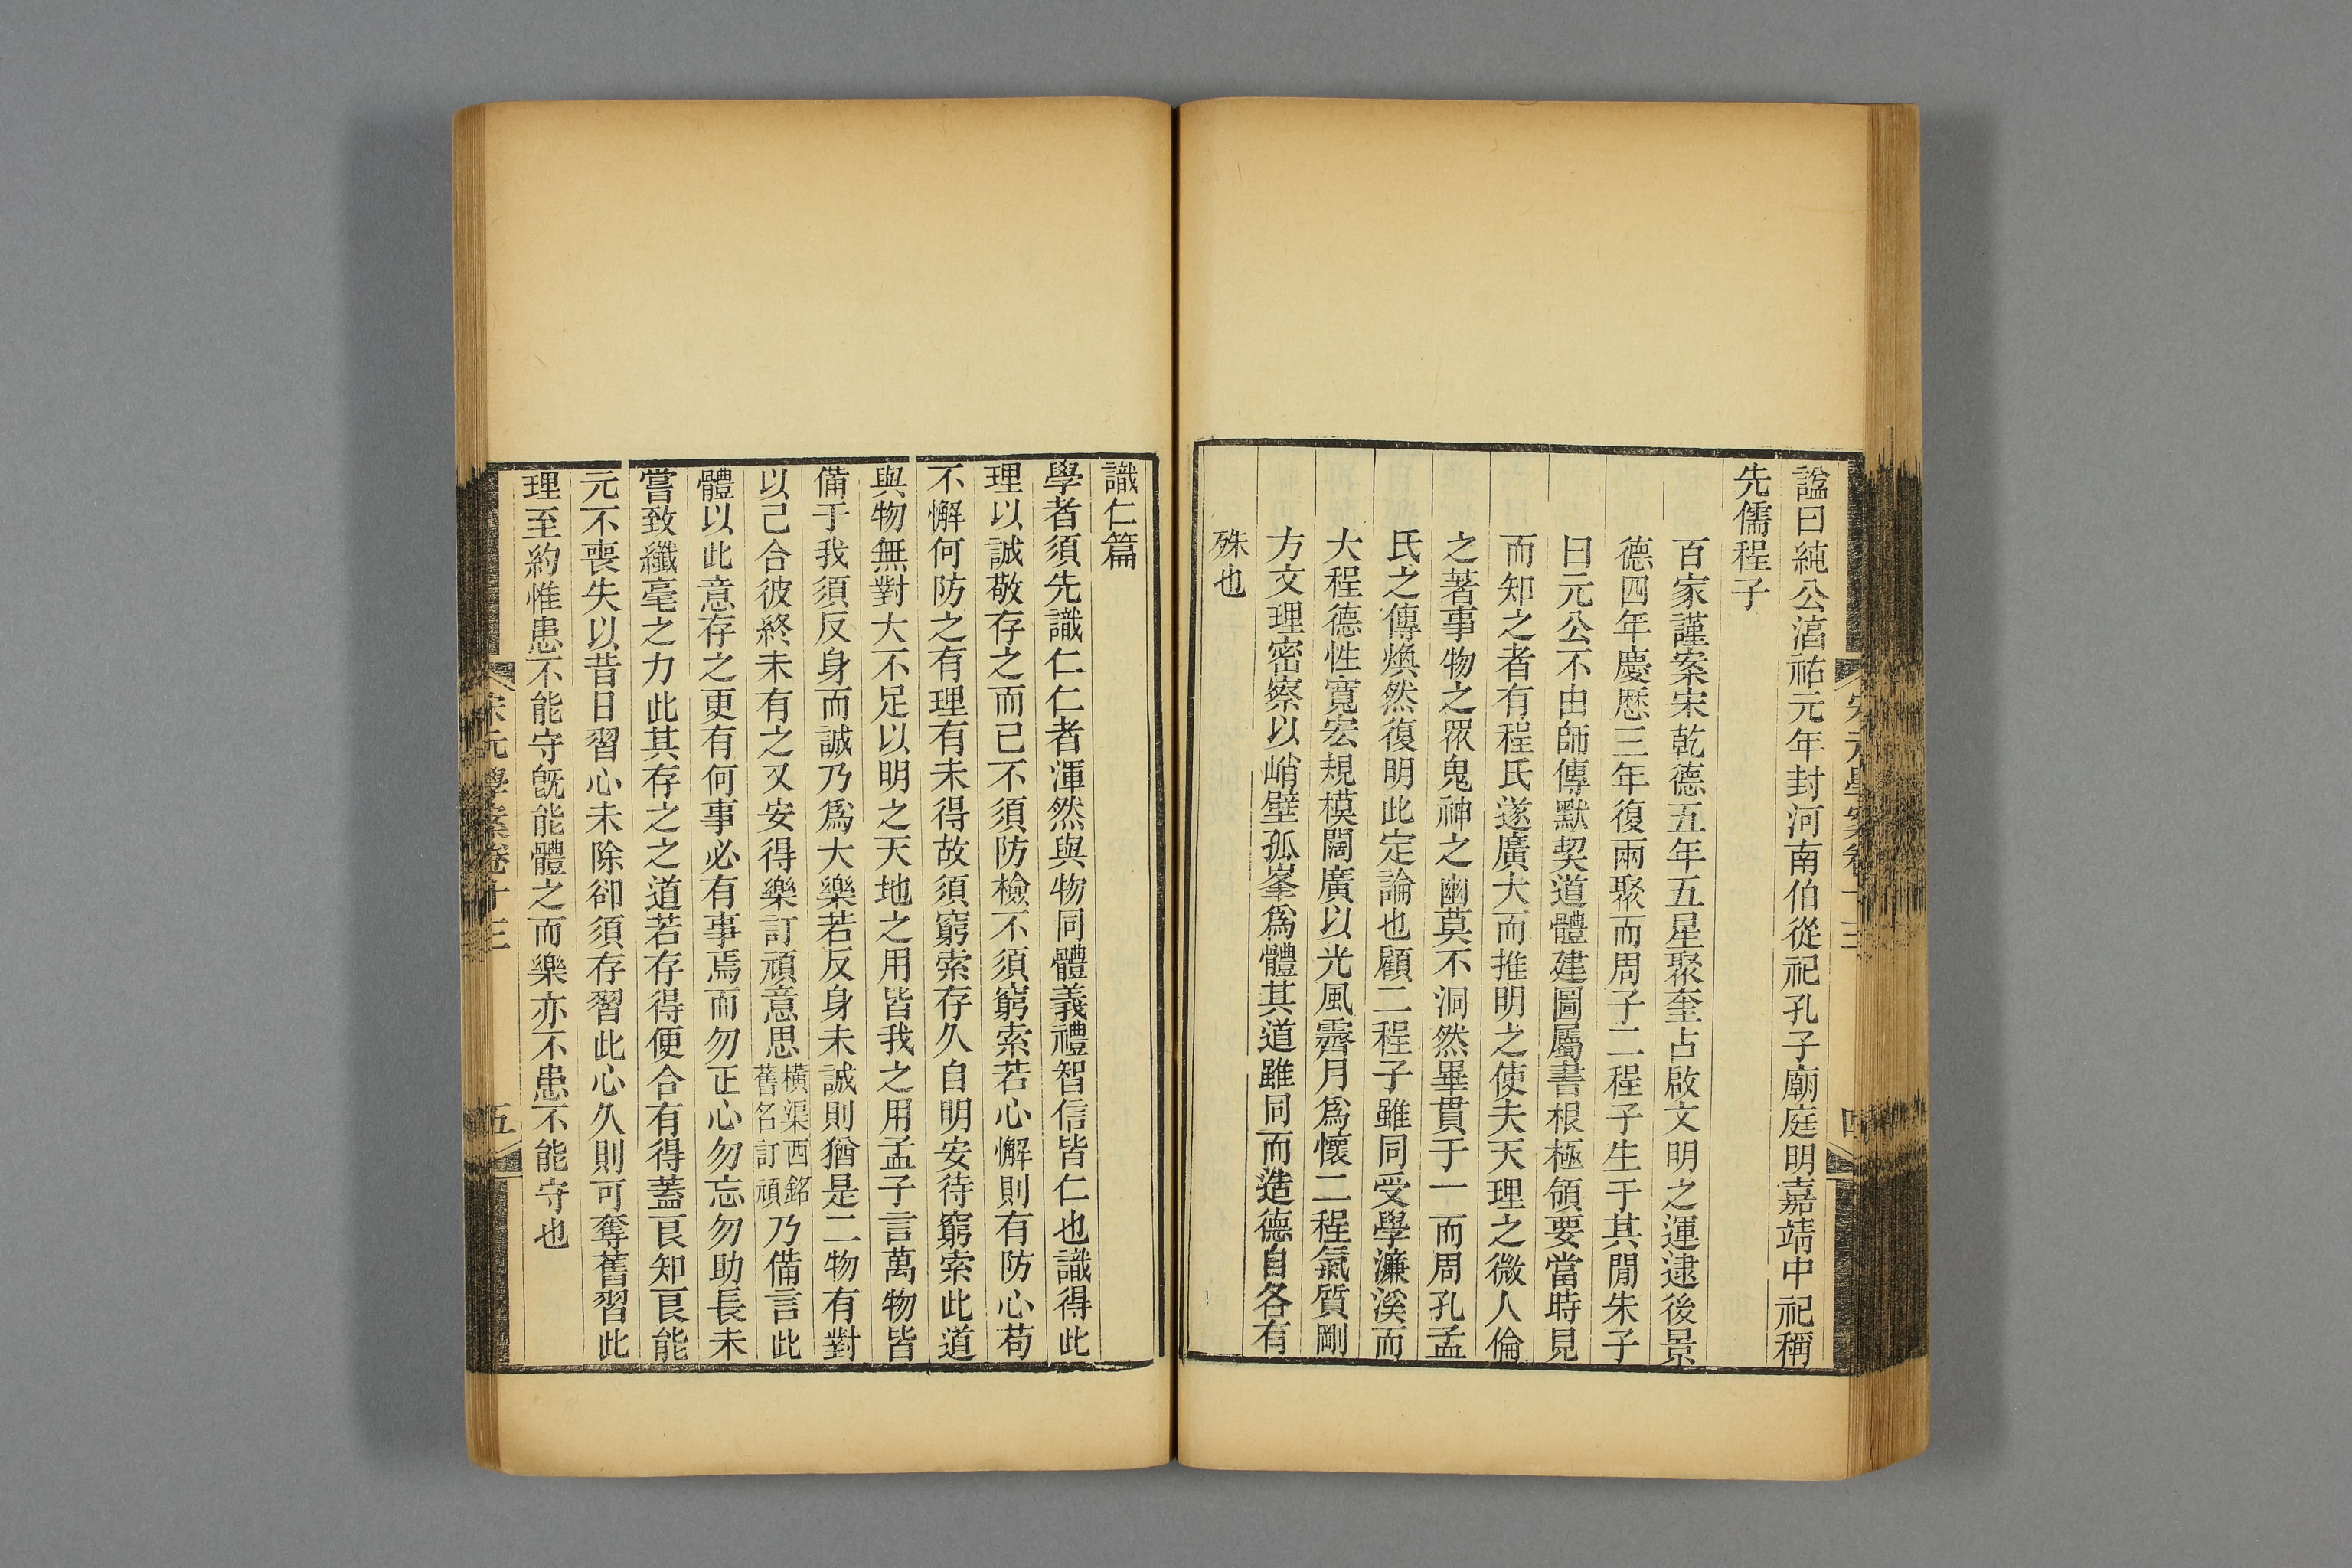 諡曰純公湻祐元年封河南伯從祀孔子廟庭明嘉靖中祀稱
先儒程子
百家謹案宋乾德五年五星聚奎占啟文明之運逮後景
德四年慶厯三年復兩聚而周子二程子生于其閒朱子
曰元公不由師傳默契道體建圖屬書根極領要當時見
而知之者有程氏遂廣大而推明之使夫天理之微人倫
之著事物之眾鬼神之幽莫不洞然畢貫于一而周孔孟
氏之傳煥然復明此定論也顧二程子雖同受學濂溪而
大程德性寬宏規模闊廣以光風霽月爲懷二程氣質剛
方文理密察以峭壁孤峯爲體其道雖同而造德自各有
殊也
宋元學案卷十三
四
識仁篇
學者須先識仁仁者渾然與物同體義禮智信皆仁也識得此
理以誠敬存之而已不須防檢不須窮索若心懈則有防心苟
不懈何防之有理有未得故須窮索存久自明安待窮索此道
與物無對大不足以明之天地之用皆我之用孟子言萬物皆
備于我須反身而誠乃爲大樂若反身未誠則猶是二物有對
以己合彼終未有之又安得樂訂頑意思橫渠西銘舊名訂頑乃備言此
體以此意存之更有何事必有事焉而勿正心勿忘勿助長未
嘗致纖毫之力此其存之之道若存得便合有得蓋良知良能
元不喪失以昔日習心未除卻須存習此心久則可奪舊習此
理至約惟患不能守旣能體之而樂亦不患不能守也
宋元學案卷十三
五